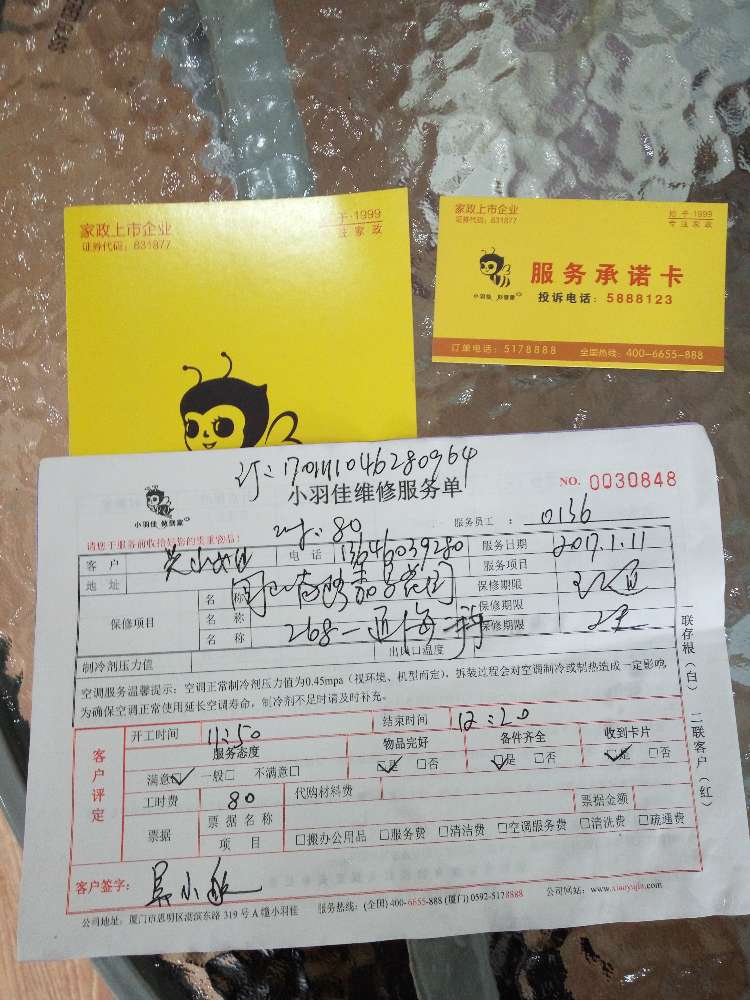 家政上市企业
证券代码：831877
于·1999
注家政
家政上市企业
证券代码：831877
始于·1999
专注家政
服务承诺卡
投诉电话：5888123
小羽佳
订单电话：5178888 全国热线：400-6655-888
小羽佳维修服务单
小羽佳 修到家
NO. 0030848
请您于服务前收拾好您的贵重物品！
80
服务员工： 0136
客户 电话 13646039280 服务日期 2017.1.11
地址 服务项目
保修项目 名称 保修期限
名称 保修期限
名称 保修期限
制冷剂压力值 出风口温度
空调服务温馨提示：空调正常制冷剂压力值为0.45mpa（视环境、机型而定），拆装过程会对空调制冷或制热造成一定影响，
为确保空调正常使用延长空调寿命，制冷剂不足时请及时补充。
开工时间 11:50 结束时间 12:20
客户评定
服务态度 物品完好 备件齐全 收到卡片
满意☑ 一般□ 不满意□ ☑是 □否 ☑是 □否 ☑是 □否
工时费 80 代购材料费
票据 票据名称 票据金额
项目 □搬办公用品 □服务费 □清洁费 □空调服务费 □清洗费 □疏通费
客户签字：
公司地址：厦门市思明区湛滨东路 319 号 A 幢小羽佳 服务热线：(全国) 400-6655-888 (厦门) 0592-5178888 公司网站：www.xiaoyujia.com
一联存根（白）
二联客户（红）